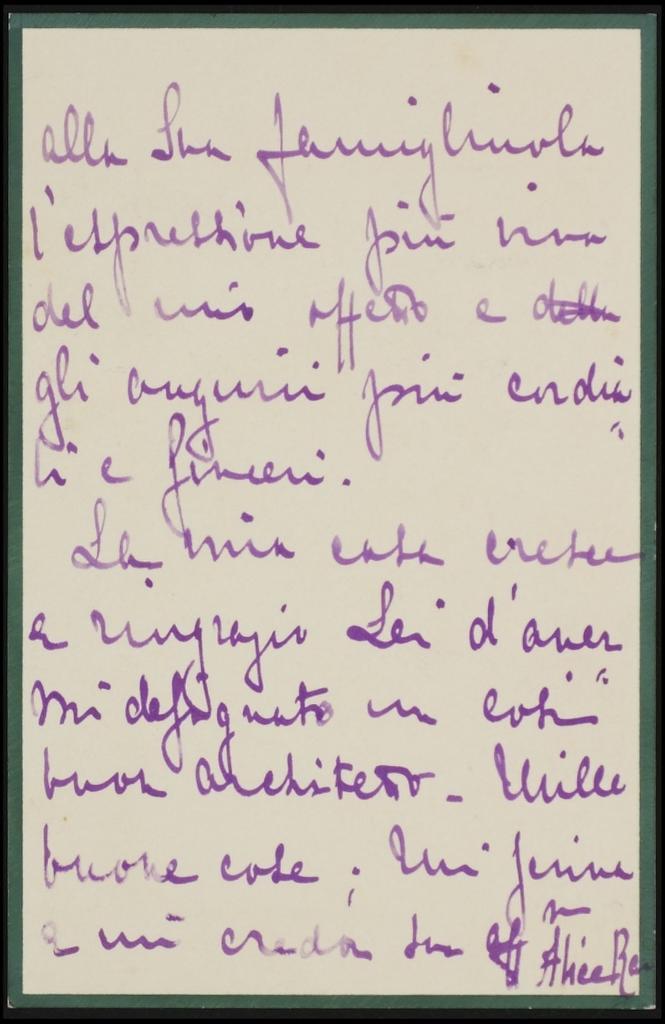 alla Sua famigliuola
l'espressione più viva
del mio affetto e della
gli augurii più cordia
li e sinceri.
La mia casa cresce
e ringrazio Lei d'aver
mi designato un così
buon architetto - Mille
buone cose; mi scriva
e mi creda sua aff
ma
Alice